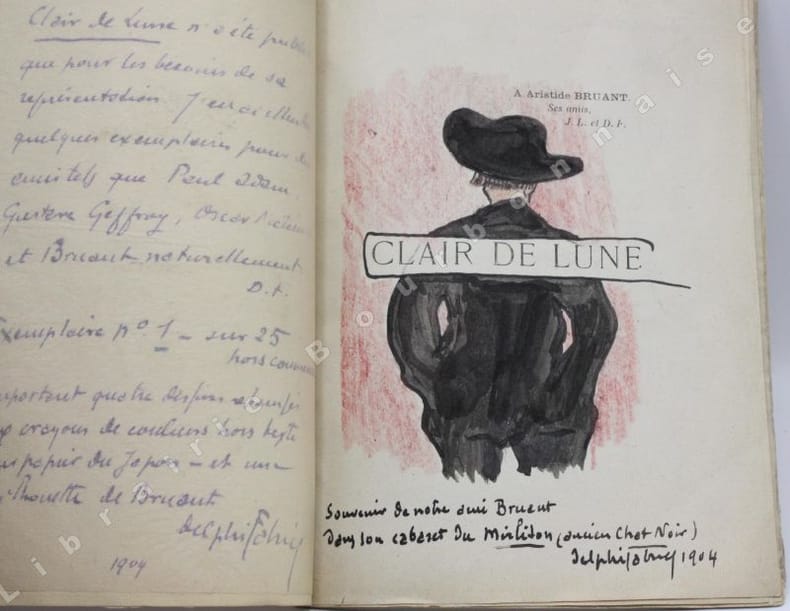 Clair de Lune n'a été publié
que pour les besoins de sa
représentation. J'en ai
quelques exemplaires pour
amis tels que Paul Adam,
Gustave Geffroy, Oscar
et Bruant naturellement
D. F.
Exemplaire nº 1 - sur 25
hors commerce
quatre dessins
crayons de couleurs hors texte
papier du Japon - et une
silhouette de Bruant
Delphi Fabrice
1904
A Aristide BRUANT.
Ses amis,
J. L. et D. F.
CLAIR DE LUNE
Souvenir de notre ami Bruant
Dans son cabaret du Mirliton (ancien Chat Noir)
Delphi Fabrice 1904
Librairie Bourbonnaise